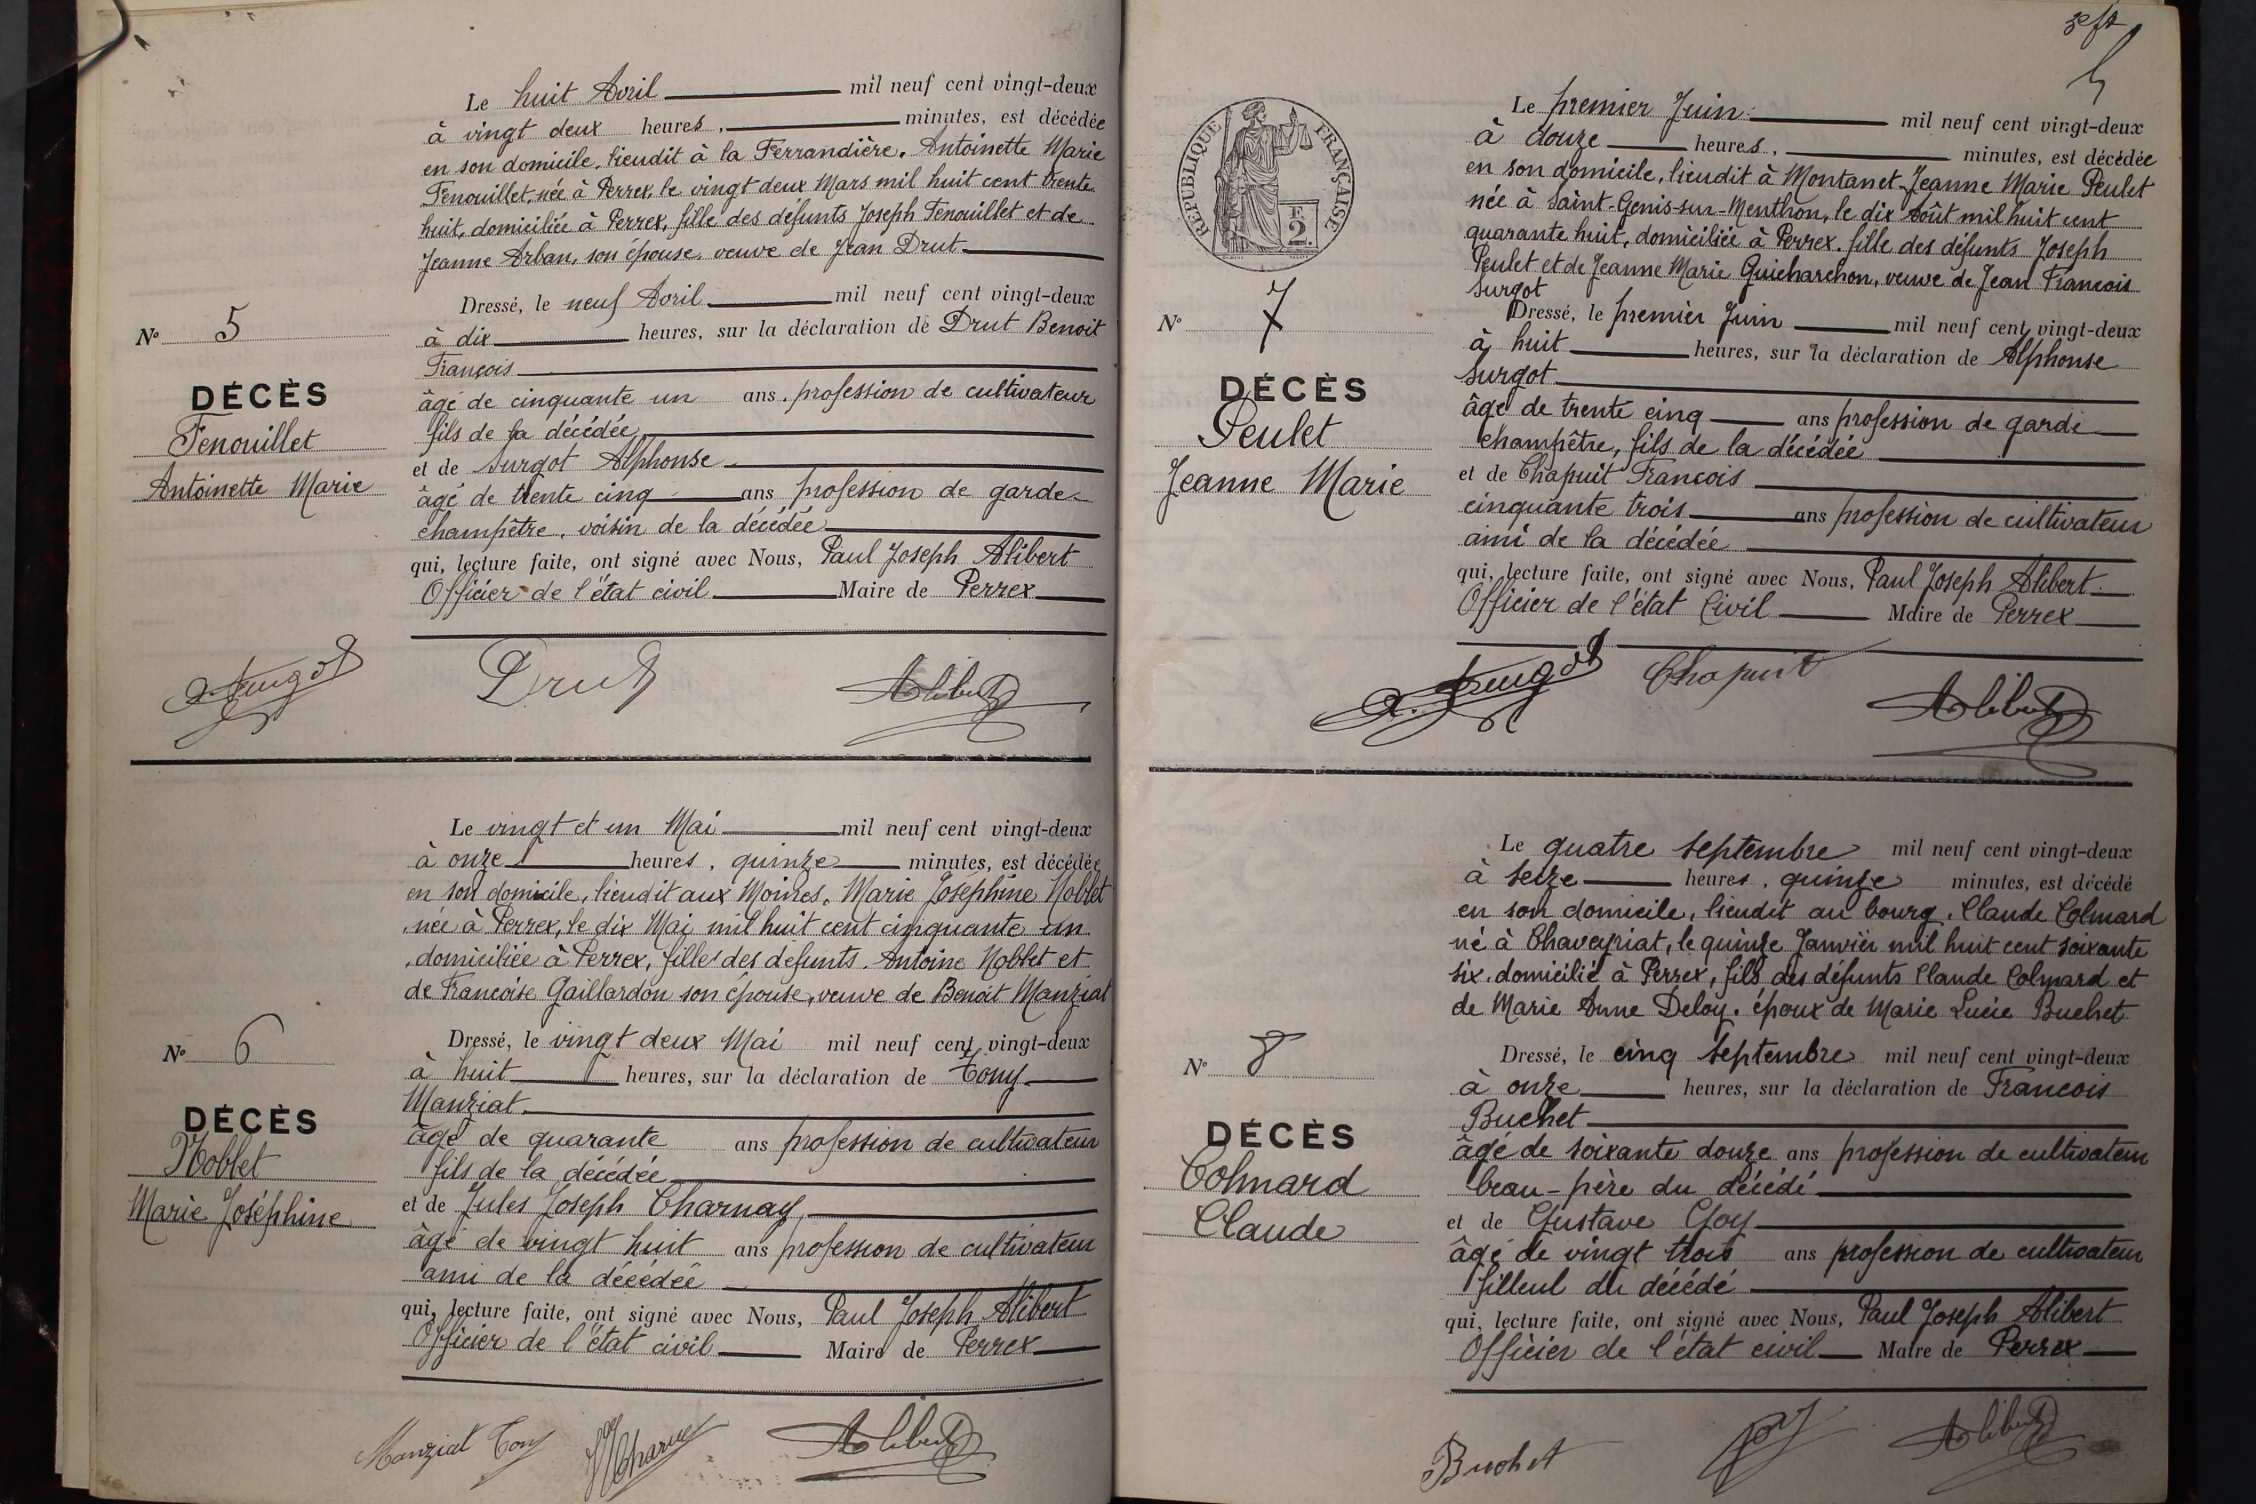 Le huit Avril mil neuf cent vingt-deux
à vingt deux heures, minutes, est décédée
en son domicile, lieudit à la Ferrandière. Antoinette Marie
Fenouillet, née à Perrex, le vingt deux Mars mil huit cent trente
huit, domiciliée à Perrex, fille des défunts Joseph Fenouillet et de
Jeanne Arban, son épouse, veuve de Jean Drut
Dressé, le neuf Avril mil neuf cent vingt-deux
à dix heures, sur la déclaration de Drut Benoit
François
âgé de cinquante un ans. profession de cultivateur
fils de la décédée
et de Surgot Alphonse
âgé de trente cinq ans profession de garde
champêtre, voisin de la décédée
qui, lecture faite, ont signé avec Nous, Paul Joseph Alibert
Officier de l'état civil Maire de Perrex
No 5
DÉCÈS
Fenouillet
Antoinette Marie
A. Surgot Drut Alibert
Le vingt et un Mai mil neuf cent vingt-deux
à onze heures, quinze minutes, est décédée
en son domicile, lieudit aux Moines, Marie Joséphine Noblet
née à Perrex, le dix Mai mil huit cent cinquante un
domiciliée à Perrex, filles des défunts Antoine Noblet et
de Francoise Gaillardon son épouse, veuve de Benoit Manziat
Dressé, le vingt deux Mai mil neuf cent vingt-deux
à huit heures, sur la déclaration de Tony
Manziat
âgé de quarante ans profession de cultivateur
fils de la décédée
et de Jules Joseph Charnay
âgé de vingt huit ans profession de cultivateur
ami de la décédée
qui, lecture faite, ont signé avec Nous, Paul Joseph Alibert
Officier de l'état civil Maire de Perrex
No 6
DÉCÈS
Noblet
Marie Joséphine
Manziat Tony JJ Charnay Alibert
RÉPUBLIQUE FRANÇAISE
F.
2.
Le premier Juin mil neuf cent vingt-deux
à douze heures, minutes, est décédée
en son domicile, lieudit à Montanet Jeanne Marie Peulet
née à Saint-Genis-sur-Menthon, le dix Août mil huit cent
quarante huit, domiciliée à Perrex, fille des défunts Joseph
Peulet et de Jeanne Marie Guicharchon, veuve de Jean Francois
Surgot
Dressé, le premier Juin mil neuf cent vingt-deux
à huit heures, sur la déclaration de Alphonse
Surgot
âgé de trente cinq ans profession de garde
champêtre, fils de la décédée
et de Chapuit François
cinquante trois ans profession de cultivateur
ami de la décédée
qui, lecture faite, ont signé avec Nous, Paul Joseph Alibert
Officier de l'état Civil Maire de Perrex
No 7
DÉCÈS
Peulet
Jeanne Marie
A. Surgot Chapuit Alibert
Le quatre septembre mil neuf cent vingt-deux
à seize heures, quinze minutes, est décédé
en son domicile, lieudit au bourg, Claude Colmard
né à Chaveyriat, le quinze Janvier mil huit cent soixante
six, domicilié à Perrex, fils des défunts Claude Colmard et
de Marie Anne Deloy. époux de Marie Lucie Buchet
Dressé, le cinq Septembre mil neuf cent vingt-deux
à onze heures, sur la déclaration de Francois
Buchet
âgé de soixante douze ans profession de cultivateur
beau-père du décédé
et de Gustave Goy
âgé de vingt trois ans profession de cultivateur
filleul du décédé
qui, lecture faite, ont signé avec Nous, Paul Joseph Alibert
Officier de l'état civil Maire de Perrex
No 8
DÉCÈS
Colmard
Claude
Buchet Goy Alibert